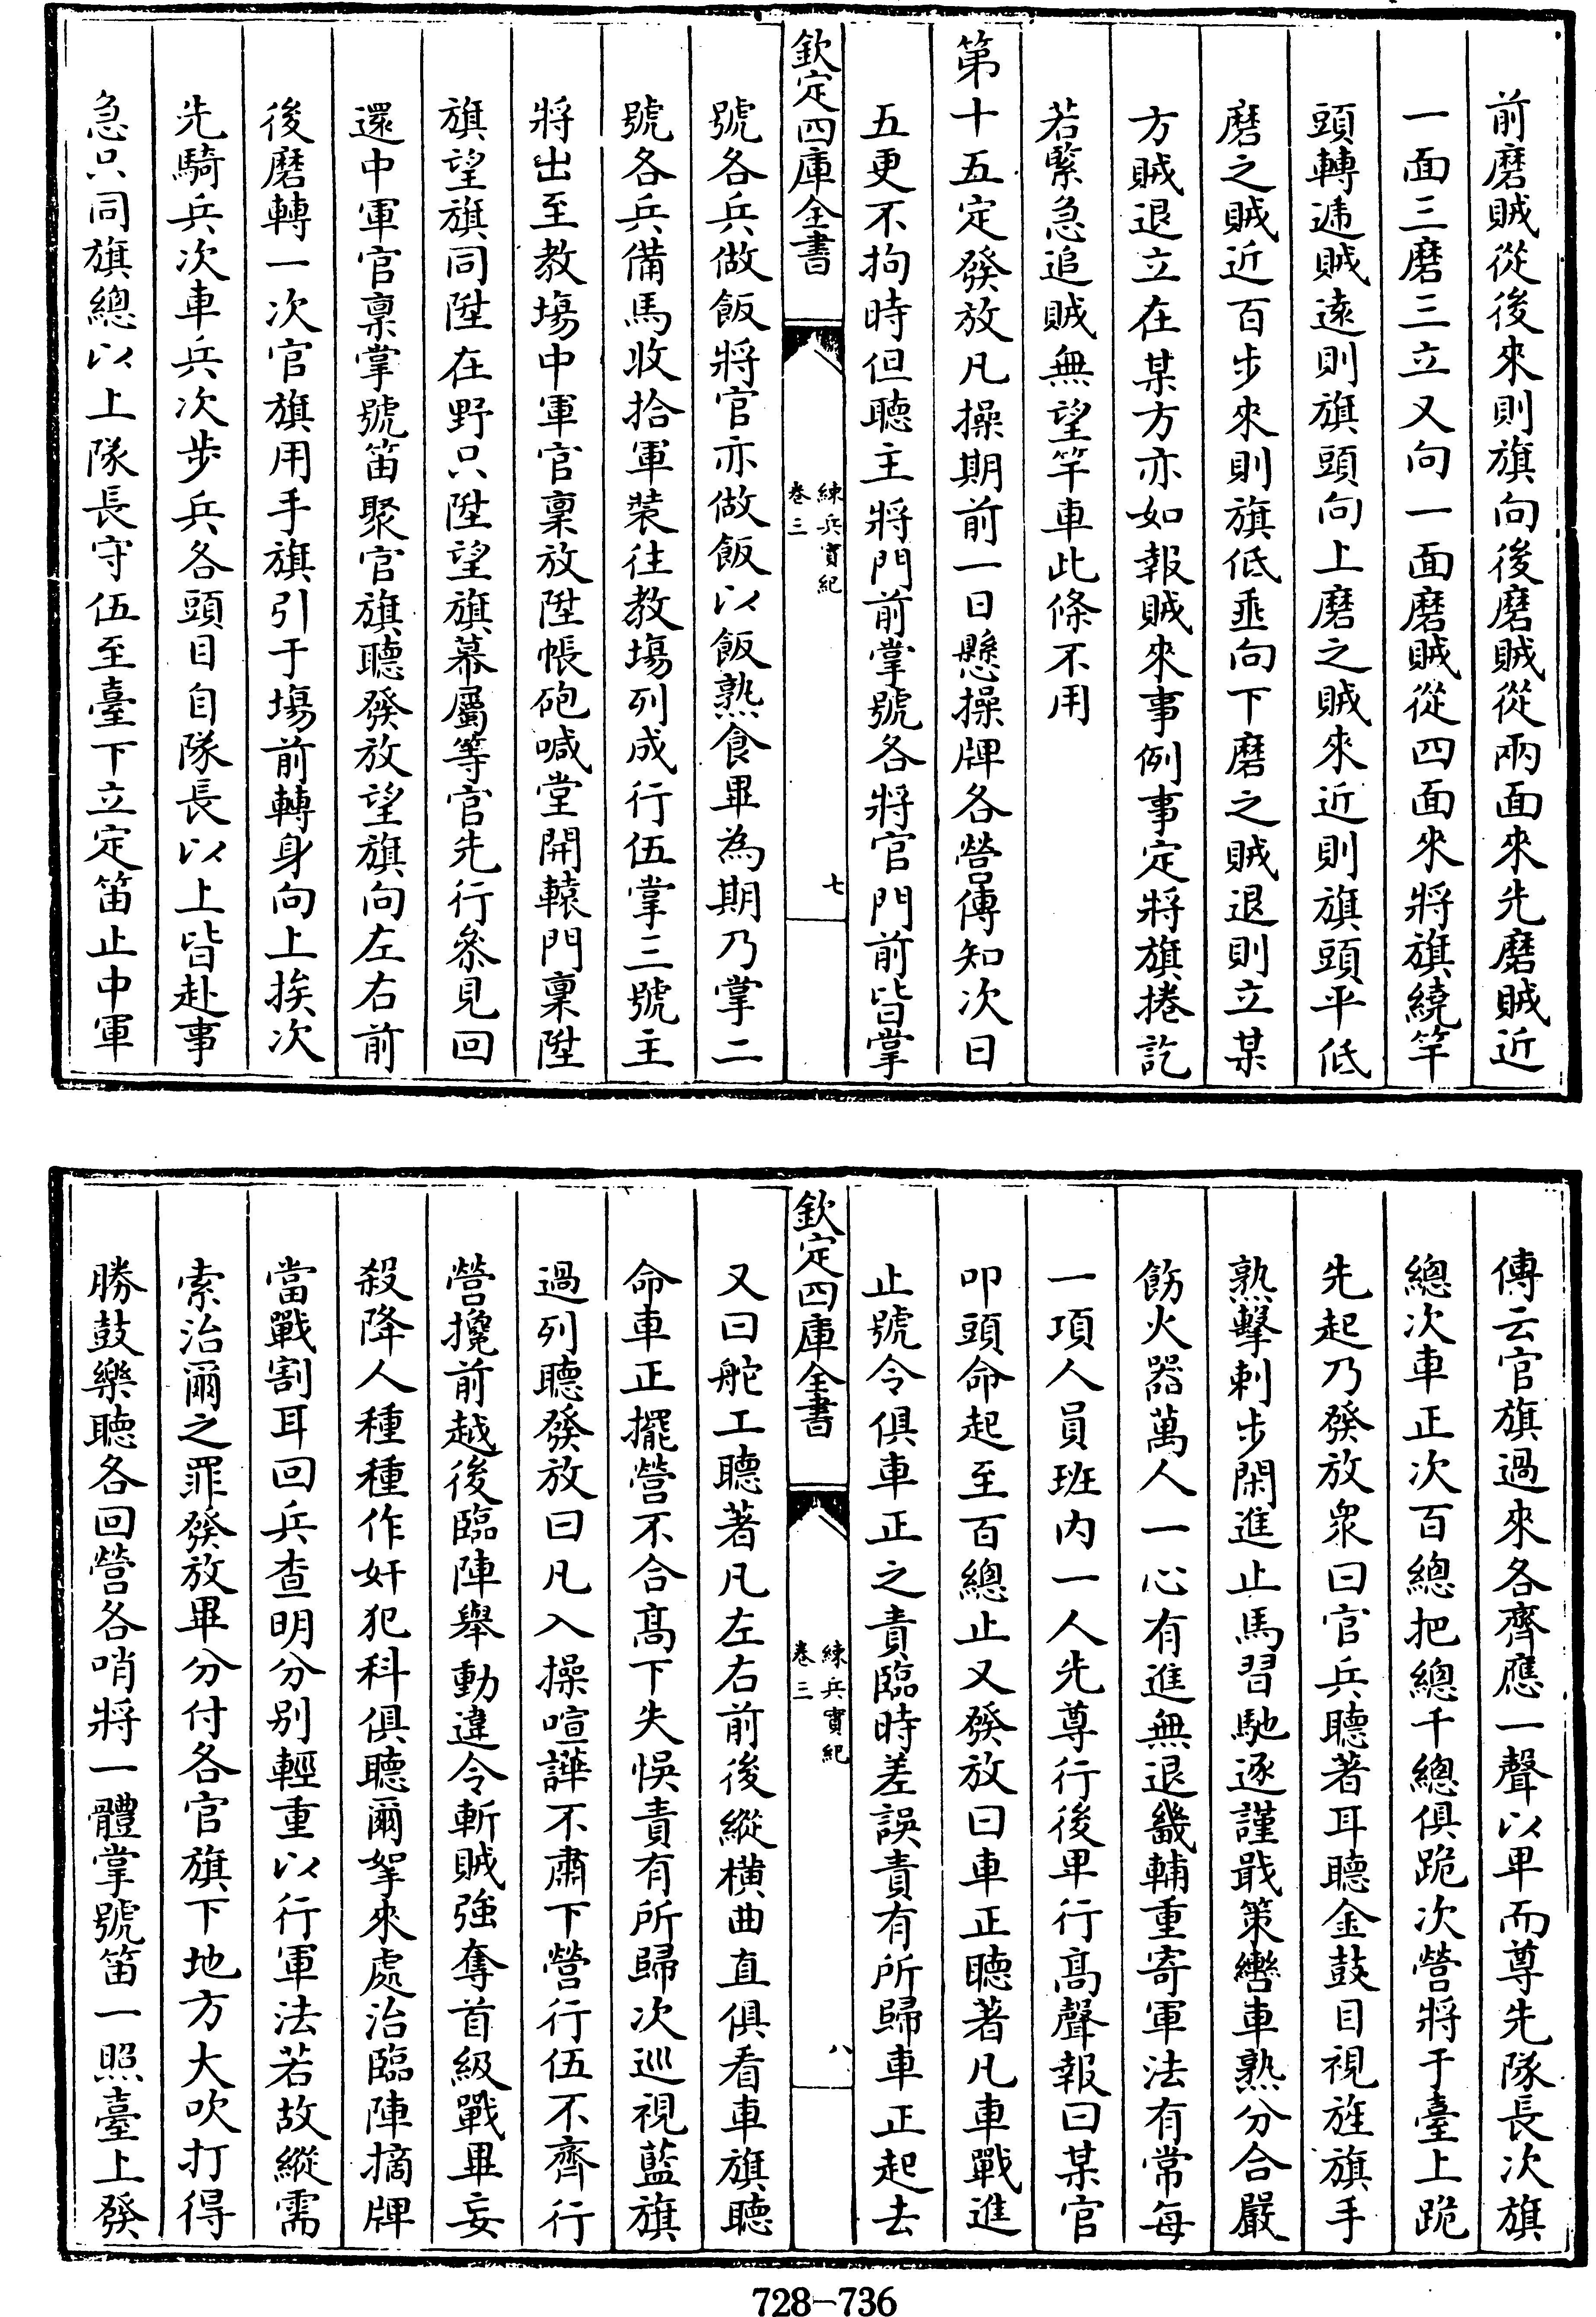 前磨賊從後來則旗向後磨賊從兩面來先磨賊近
一面三磨三立又向一面磨賊從四面來將旗繞竿
頭轉遞賊遠則旗頭向上磨之賊來近則旗頭平低
磨之賊近百步來則旗低垂向下磨之賊退則立某
方賊退立在某方亦如報賊來事例事定將旗捲訖
若緊急追賊無望竿車此條不用
第十五定發放凡操期前一日懸操牌各營傳知次日
五更不拘時但聽主將門前掌號各將官門前皆掌
欽定四庫全書
練兵實紀
卷三
七
號各兵做飯將官亦做飯以飯熟食畢為期乃掌二
號各兵備馬收拾軍裝往教場列成行伍掌三號主
將出至教場中軍官稟放陞帳砲喊堂開轅門稟陞
旗望旗同陞在野只陞望旗幕屬等官先行叅見回
還中軍官稟掌號笛聚官旗聽發放望旗向左右前
後磨轉一次官旗用手旗引于場前轉身向上挨次
先騎兵次車兵次步兵各頭目自隊長以上皆赴事
急只同旗總以上隊長守伍至臺下立定笛止中軍
傳云官旗過來各齊應一聲以卑而尊先隊長次旗
總次車正次百總把總千總俱跪次營將于臺上跪
先起乃發放衆曰官兵聽著耳聽金鼓目視旌旗手
熟擊刺步閑進止馬習馳逐謹戢策轡車熟分合嚴
飭火器萬人一心有進無退畿輔重寄軍法有常每
一項人員班内一人先尊行後卑行高聲報曰某官
叩頭命起至百總止又發放曰車正聽著凡車戰進
止號令俱車正之責臨時差誤責有所歸車正起去
欽定四庫全書
練兵實紀
卷三
八
又曰舵工聽著凡左右前後縱橫曲直俱看車旗聽
命車正擺營不合高下失悞責有所歸次巡視藍旗
過列聽發放曰凡入操喧譁不肅下營行伍不齊行
營攙前越後臨陣舉動違令斬賊強奪首級戰畢妄
殺降人種種作奸犯科俱聽爾拏來處治臨陣摘牌
當戰割耳回兵查明分別輕重以行軍法若故縱需
索治爾之罪發放畢分付各官旗下地方大吹打得
勝鼓樂聽各回營各哨將一體掌號笛一照臺上發
728-736